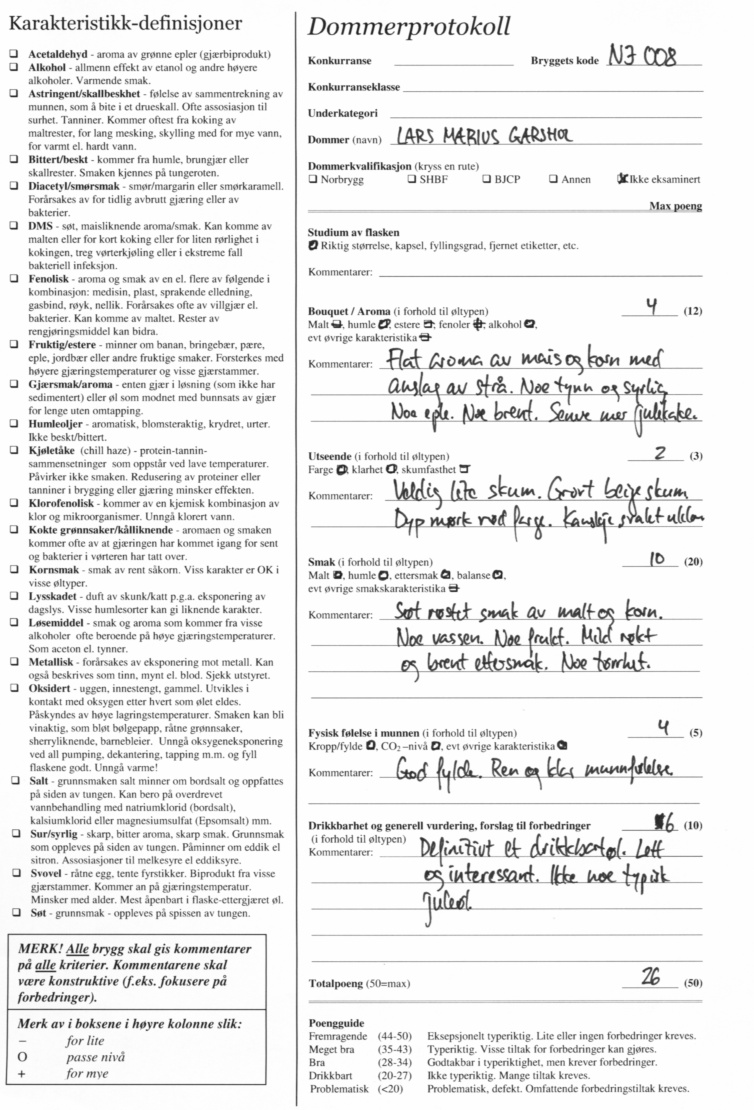 Karakteristikk-definisjoner
❏ Acetaldehyd - aroma av grønne epler (gjærbiprodukt)
❏ Alkohol - allmenn effekt av etanol og andre høyere
alkoholer. Varmende smak.
❏ Astringent/skallbeskhet - følelse av sammentrekning av
munnen, som å bite i et drueskall. Ofte assosiasjon til
surhet. Tanniner. Kommer oftest fra koking av
maltrester, for lang mesking, skylling med for mye vann,
for varmt el. hardt vann.
❏ Bittert/beskt - kommer fra humle, brungjær eller
skallrester. Smaken kjennes på tungeroten.
❏ Diacetyl/smørsmak - smør/margarin eller smørkaramell.
Forårsakes av for tidlig avbrutt gjæring eller av
bakterier.
❏ DMS - søt, maisliknende aroma/smak. Kan komme av
malten eller for kort koking eller for liten rørlighet i
kokingen, treg vørterkjøling eller i ekstreme fall
bakteriell infeksjon.
❏ Fenolisk - aroma og smak av en el. flere av følgende i
kombinasjon: medisin, plast, sprakende elledning,
gasbind, røyk, nellik. Forårsakes ofte av villgjær el.
bakterier. Kan komme av maltet. Rester av
rengjøringsmiddel kan bidra.
❏ Fruktig/estere - minner om banan, bringebær, pære,
eple, jordbær eller andre fruktige smaker. Forsterkes med
høyere gjæringstemperaturer og visse gjærstammer.
❏ Gjærsmak/aroma - enten gjær i løsning (som ikke har
sedimentert) eller øl som modnet med bunnsats av gjær
for lenge uten omtapping.
❏ Humleoljer - aromatisk, blomsteraktig, krydret, urter.
Ikke beskt/bittert.
❏ Kjøletåke (chill haze) - protein-tannin-
sammensetninger som oppstår ved lave temperaturer.
Påvirker ikke smaken. Redusering av proteiner eller
tanniner i brygging eller gjæring minsker effekten.
❏ Klorofenolisk - kommer av en kjemisk kombinasjon av
klor og mikroorganismer. Unngå klorert vann.
❏ Kokte grønnsaker/kålliknende - aromaen og smaken
kommer ofte av at gjæringen har kommet igang for sent
og bakterier i vørteren har tatt over.
❏ Kornsmak - smak av rent såkorn. Viss karakter er OK i
visse øltyper.
❏ Lysskadet - duft av skunk/katt p.g.a. eksponering av
dagslys. Visse humlesorter kan gi liknende karakter.
❏ Løsemiddel - smak og aroma som kommer fra visse
alkoholer ofte beroende på høye gjæringstemperaturer.
Som aceton el. tynner.
❏ Metallisk - forårsakes av eksponering mot metall. Kan
også beskrives som tinn, mynt el. blod. Sjekk utstyret.
❏ Oksidert - uggen, innestengt, gammel. Utvikles i
kontakt med oksygen etter hvert som ølet eldes.
Påskyndes av høye lagringstemperaturer. Smaken kan bli
vinaktig, som bløt bølgepapp, råtne grønnsaker,
sherryliknende, barnebleier. Unngå oksygeneksponering
ved all pumping, dekantering, tapping m.m. og fyll
flaskene godt. Unngå varme!
❏ Salt - grunnsmaken salt minner om bordsalt og oppfattes
på siden av tungen. Kan bero på overdrevet
vannbehandling med natriumklorid (bordsalt),
kalsiumklorid eller magnesiumsulfat (Epsomsalt) mm.
❏ Sur/syrlig - skarp, bitter aroma, skarp smak. Grunnsmak
som oppleves på siden av tungen. Påminner om eddik el
sitron. Assosiasjoner til melkesyre el eddiksyre.
❏ Svovel - råtne egg, tente fyrstikker. Biprodukt fra visse
gjærstammer. Kommer an på gjæringstemperatur.
Minsker med alder. Mest åpenbart i flaske-ettergjæret øl.
❏ Søt - grunnsmak - oppleves på spissen av tungen.
MERK! Alle brygg skal gis kommentarer
på alle kriterier. Kommentarene skal
være konstruktive (f.eks. fokusere på
forbedringer).
Merk av i boksene i høyre kolonne slik:
– for lite
O passe nivå
+ for mye
Dommerprotokoll
Konkurranse Bryggets kode NJ 008
Konkurranseklasse
Underkategori
Dommer (navn) LARS MARIUS GARSHOL
Dommerkvalifikasjon (kryss en rute)
❏ Norbrygg ❏ SHBF ❏ BJCP ❏ Annen ☒ Ikke eksaminert
Max poeng
Studium av flasken
Riktig størrelse, kapsel, fyllingsgrad, fjernet etiketter, etc.
Kommentarer:
Bouquet / Aroma (i forhold til øltypen) 4 (12)
Malt, humle, estere, fenoler, alkohol,
evt øvrige karakteristika
Kommentarer: Flat aroma av mais og korn med
anslag av strå. Noe tynn og syrlig
Noe eple. Noe brent. Senere mer julekake.
Utseende (i forhold til øltypen) 2 (3)
Farge, klarhet, skumfasthet
Kommentarer: Veldig lite skum. Grovt beige skum
Dyp mørk rød farge. Kanskje svakt uklar
Smak (i forhold til øltypen) 10 (20)
Malt, humle, ettersmak, balanse,
evt øvrige smakskarakteristika
Kommentarer: Søt røstet smak av malt og korn.
Noe vassen. Noe frukt. Mild røkt
og brent ettersmak. Noe tørrhet.
Fysisk følelse i munnen (i forhold til øltypen) 4 (5)
Kropp/fylde, CO₂–nivå, evt øvrige karakteristika
Kommentarer: God fylde. Ren og klar munnfølelse
Drikkbarhet og generell vurdering, forslag til forbedringer 6 (10)
(i forhold til øltypen)
Kommentarer: Definitivt et drikkbart øl. Lett
og interessant. Ikke noe typisk
juleøl.
Totalpoeng (50=max) 26 (50)
Poengguide
Fremragende (44-50) Eksepsjonelt typeriktig. Lite eller ingen forbedringer kreves.
Meget bra (35-43) Typeriktig. Visse tiltak for forbedringer kan gjøres.
Bra (28-34) Godtakbar i typeriktighet, men krever forbedringer.
Drikkbart (20-27) Ikke typeriktig. Mange tiltak kreves.
Problematisk (<20) Problematisk, defekt. Omfattende forbedringstiltak kreves.